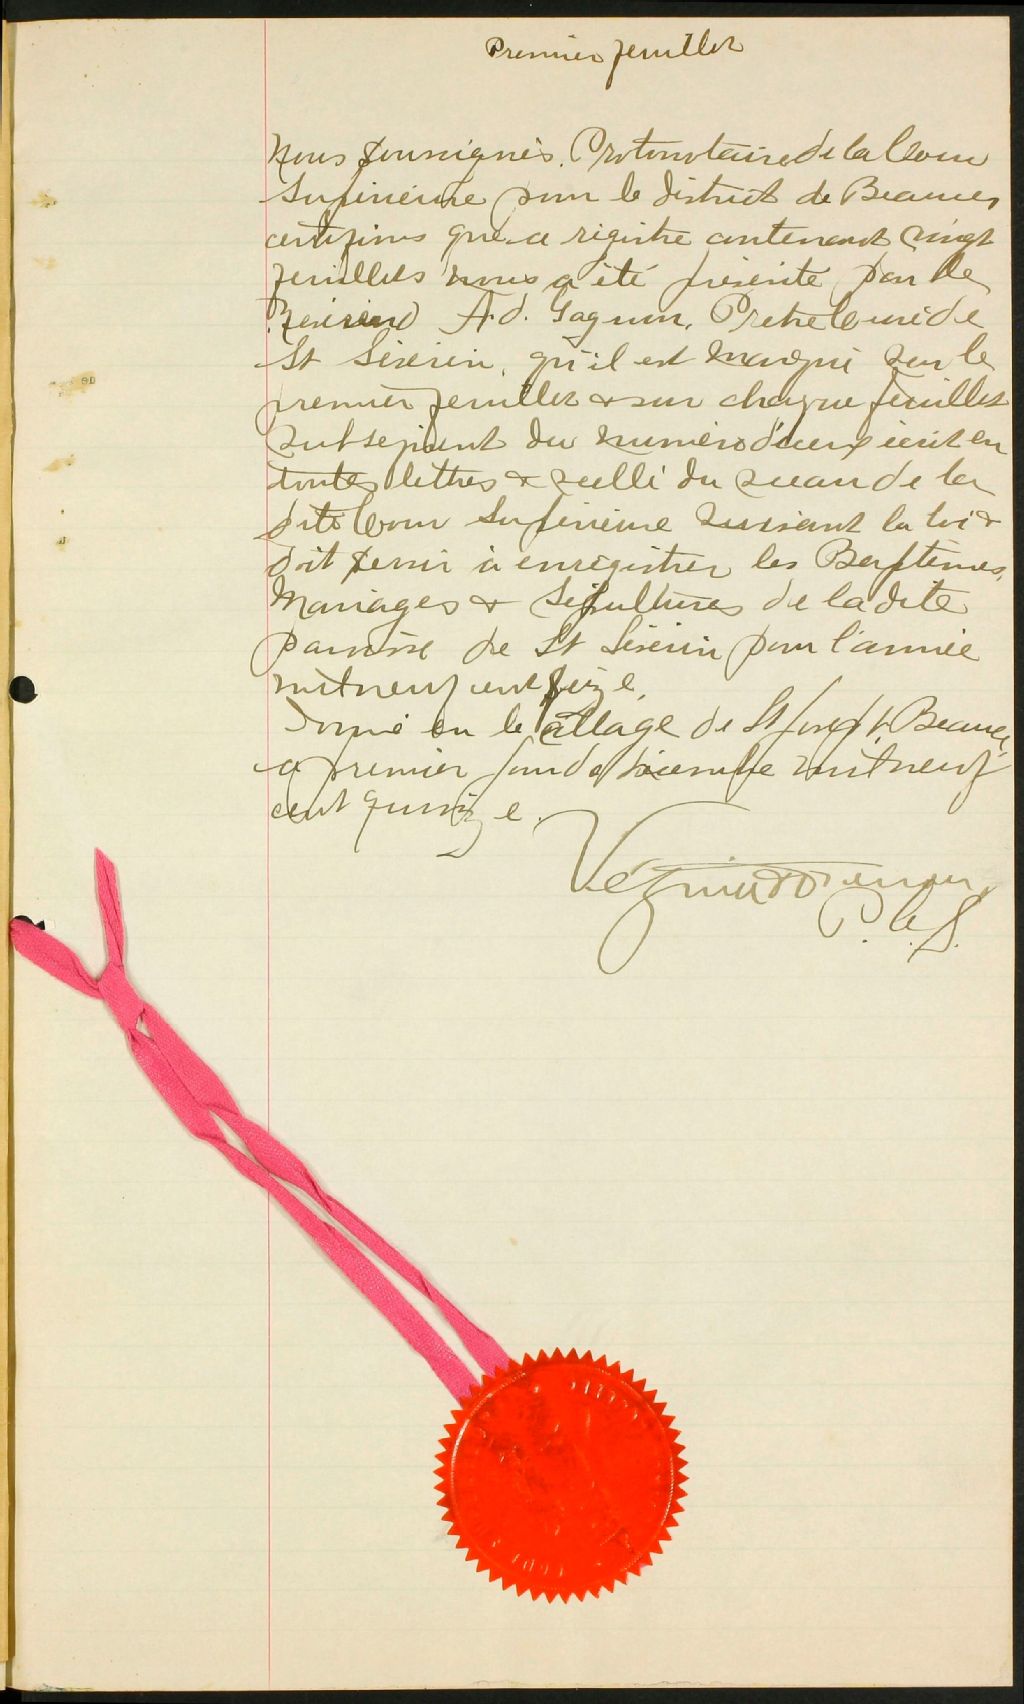 Premier feuillet
Nous soussignés, Protonotaire de la Cour
Supérieure pour le district de Beauce,
certifions que ce registre contenant vingt
feuillets nous a été présenté par le
Révérend Ad. Gagnon, Prêtre Curé de
St Séverin, qu'il est marqué sur le
premier feuillet & sur chaque feuillet
subséquent du numéro d'iceux écrit en
toutes lettres & scellé du sceau de la
dite Cour Supérieure suivant la loi &
doit servir à enregistrer les Baptêmes,
Mariages & Sépultures de la dite
paroisse de St Séverin pour l'année
mil neuf cent seize.
Donné en le village de St Joseph, Beauce
ce premier jour de décembre mil neuf
cent quinze.
Vézina &
P. C. S.